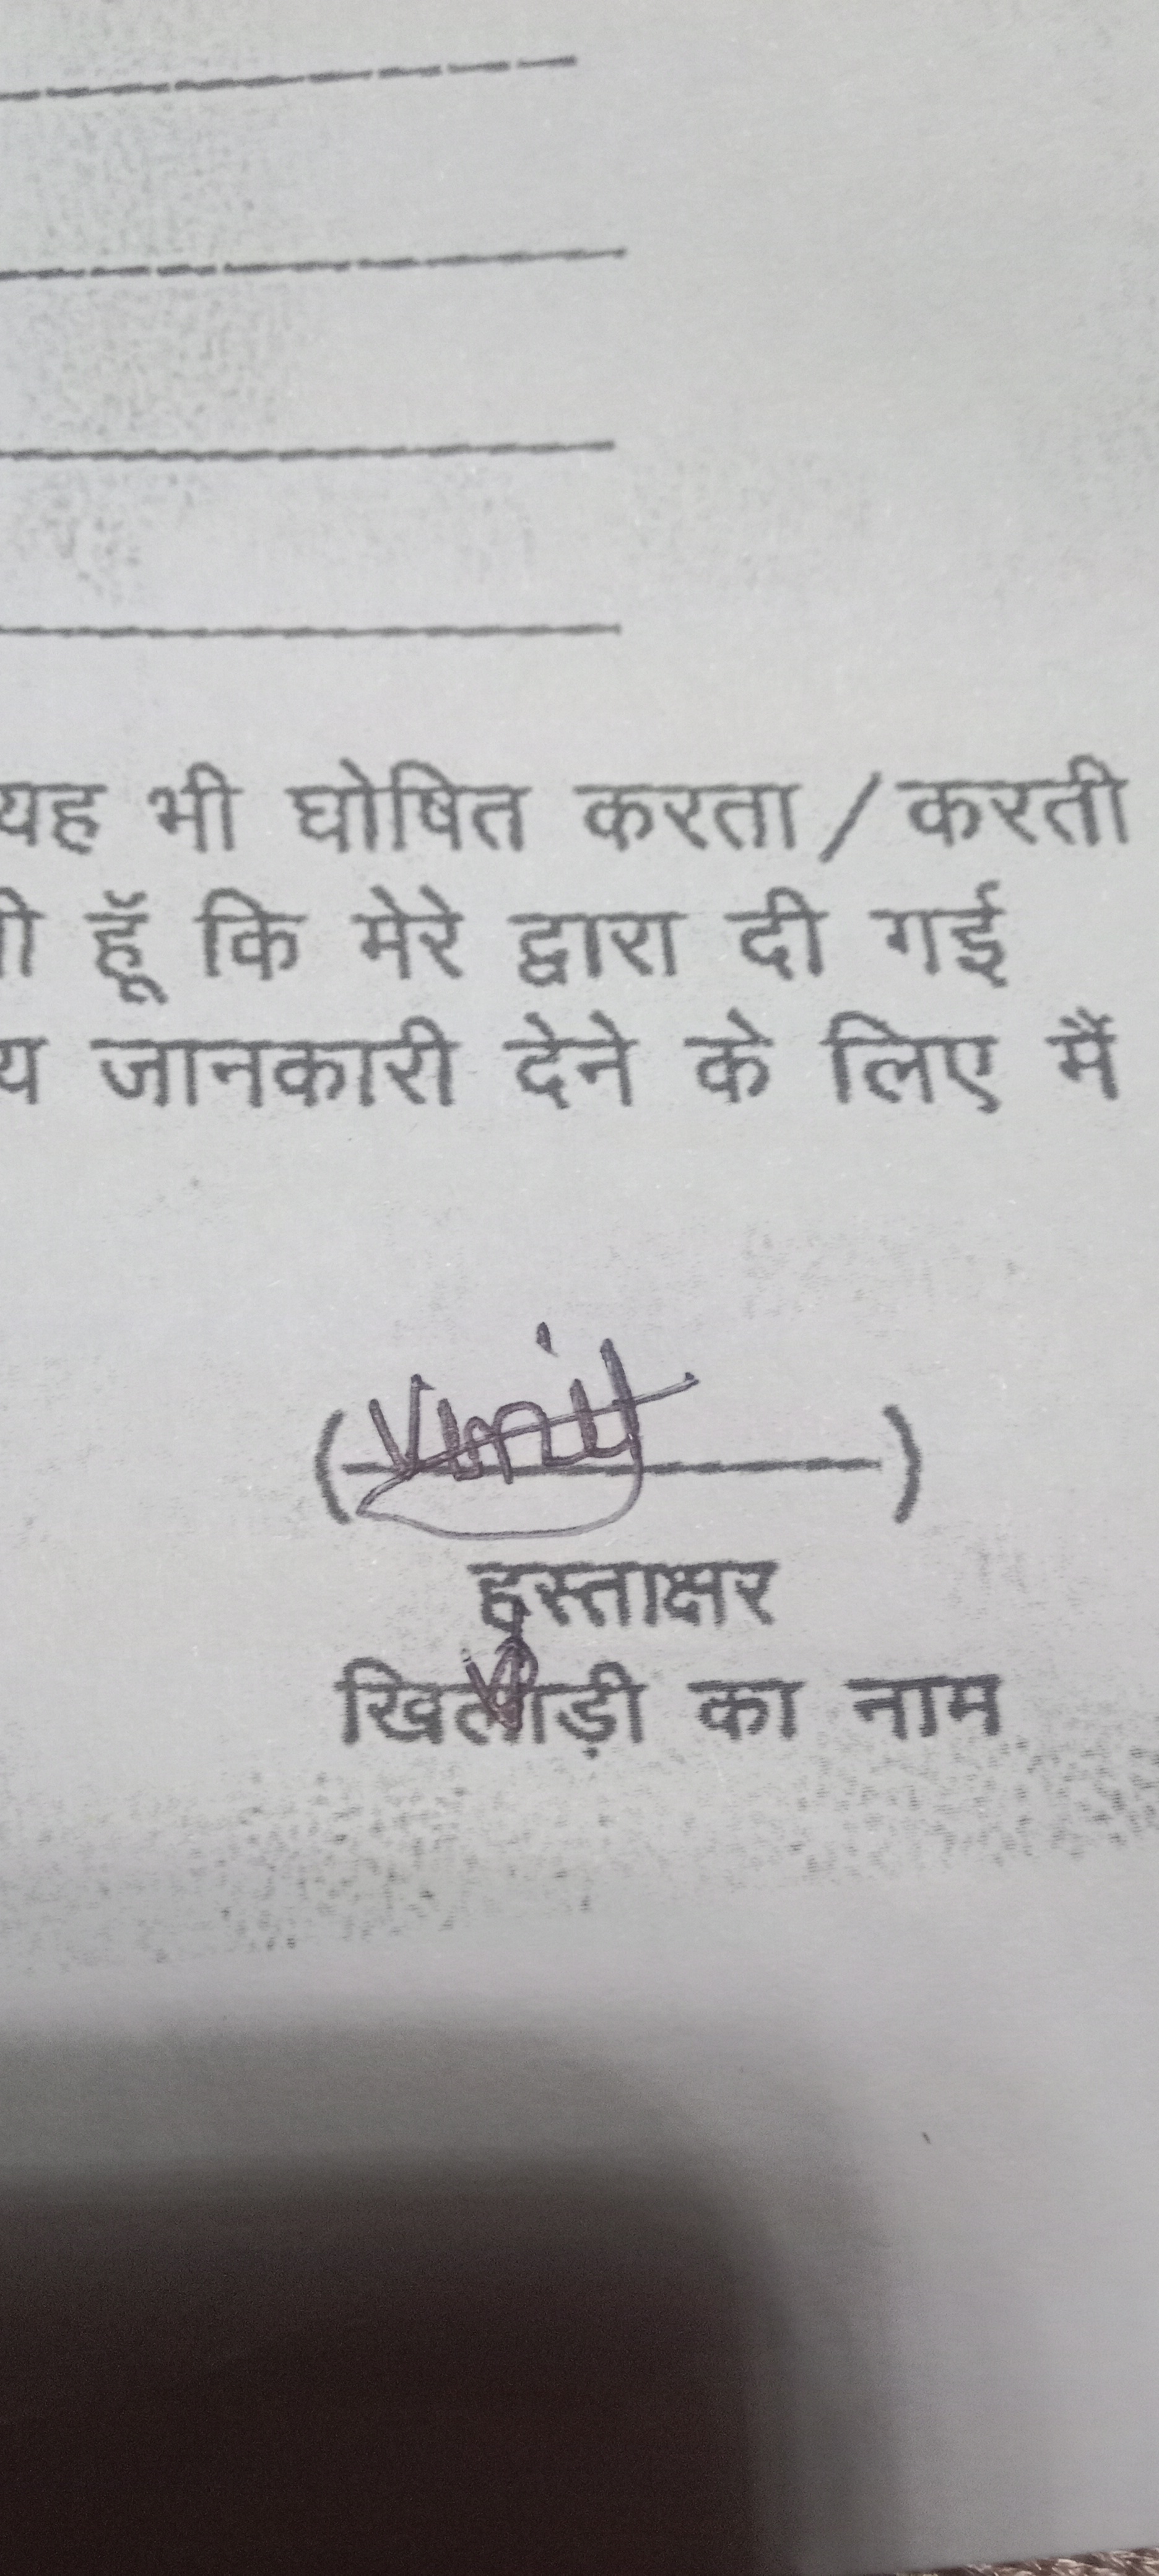 यह भी घोषित करता / करती
हूॅं कि मेरे द्वारा दी गई
जानकारी देने के लिए मैं
( )
हस्ताक्षर
खिलाड़ी का नाम